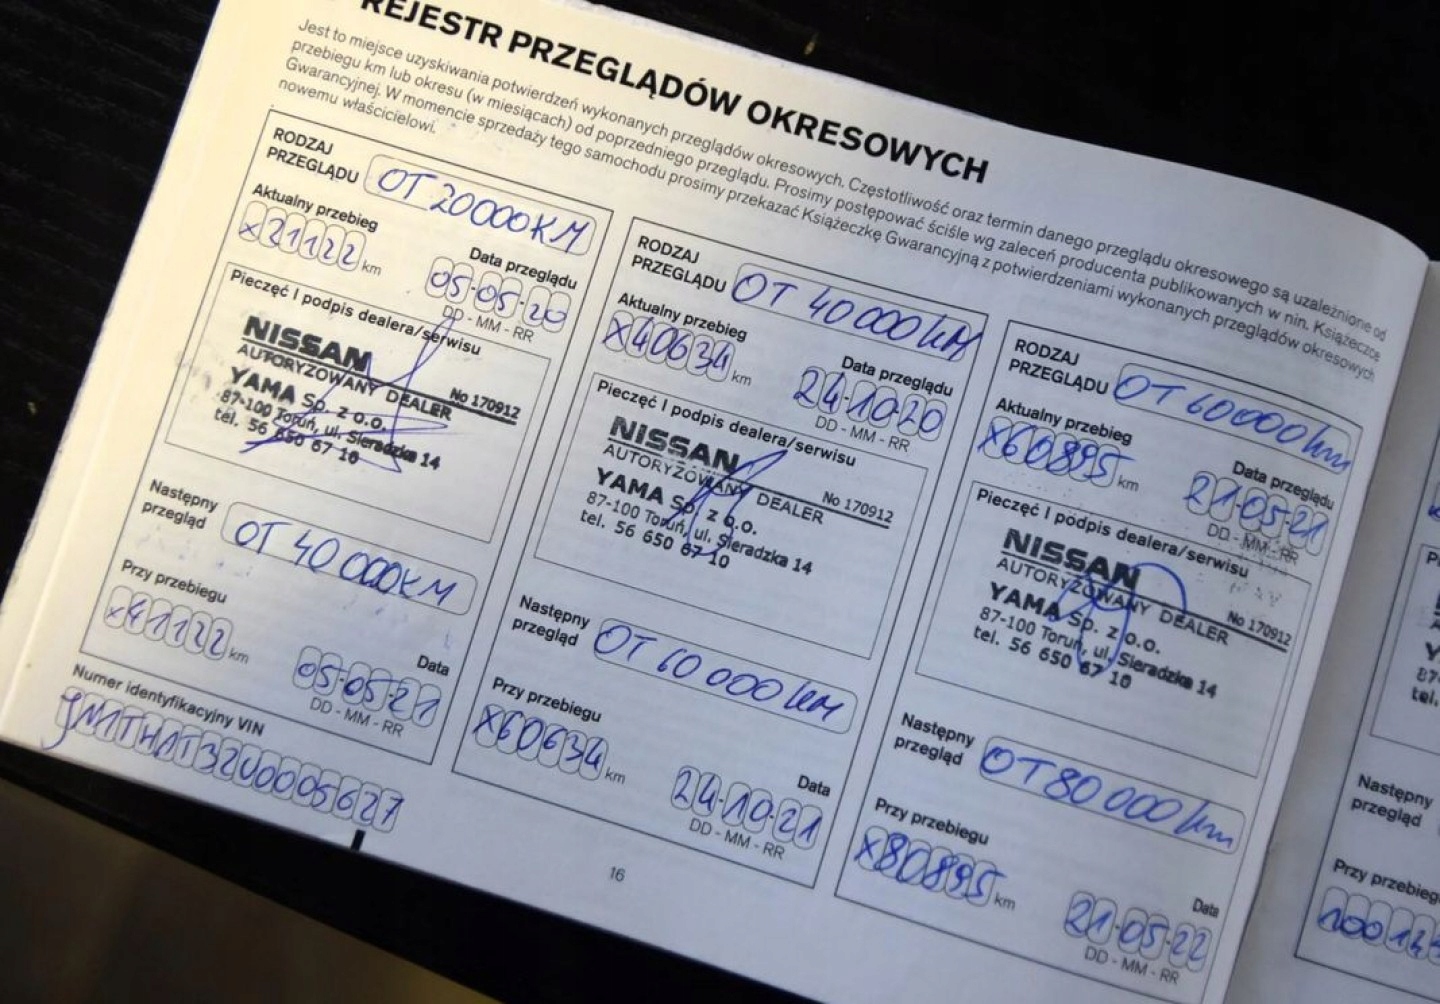 REJESTR PRZEGLĄDÓW OKRESOWYCH
Jest to miejsce uzyskiwania potwierdzeń wykonanych przeglądów okresowych. Częstotliwość oraz termin danego przeglądu okresowego są uzależnione od
przebiegu km lub okresu (w miesiącach) od poprzedniego przeglądu. Prosimy postępować ściśle wg zaleceń producenta publikowanych w nin. Książeczce
Gwarancyjnej. W momencie sprzedaży tego samochodu prosimy przekazać Książeczkę Gwarancyjną z potwierdzeniami wykonanych przeglądów okresowych
nowemu właścicielowi.
RODZAJ
PRZEGLĄDU OT 20000KM
Aktualny przebieg
x21122 km
Data przeglądu
05-05-20
DD - MM - RR
Pieczęć I podpis dealera/serwisu
NISSAN
AUTORYZOWANY DEALER No 170912
YAMA Sp. z o.o.
87-100 Toruń, ul. Sieradzka 14
tel. 56 650 67 10
Następny
przegląd OT 40 000KM
Przy przebiegu
x41122 km
Data
05-05-21
DD - MM - RR
Numer identyfikacyjny VIN
JN1TH1T32U0005627
RODZAJ
PRZEGLĄDU OT 40 000 km
Aktualny przebieg
x40634 km
Data przeglądu
24-10-20
DD - MM - RR
Pieczęć I podpis dealera/serwisu
NISSAN
AUTORYZOWANY DEALER No 170912
YAMA Sp. z o.o.
87-100 Toruń, ul. Sieradzka 14
tel. 56 650 67 10
Następny
przegląd OT 60 000 km
Przy przebiegu
x60634 km
Data
24-10-21
DD - MM - RR
RODZAJ
PRZEGLĄDU OT 60000 km
Aktualny przebieg
x60895 km
Data przeglądu
21-05-21
DD - MM - RR
Pieczęć I podpis dealera/serwisu
NISSAN
AUTORYZOWANY DEALER No 170912
YAMA Sp. z o.o.
87-100 Toruń, ul. Sieradzka 14
tel. 56 650 67 10
Następny
przegląd OT 80 000 km
Przy przebiegu
x80895 km
Data
21-05-22
DD - MM - RR
16
tel.
Następny
przegląd
Przy przebieg